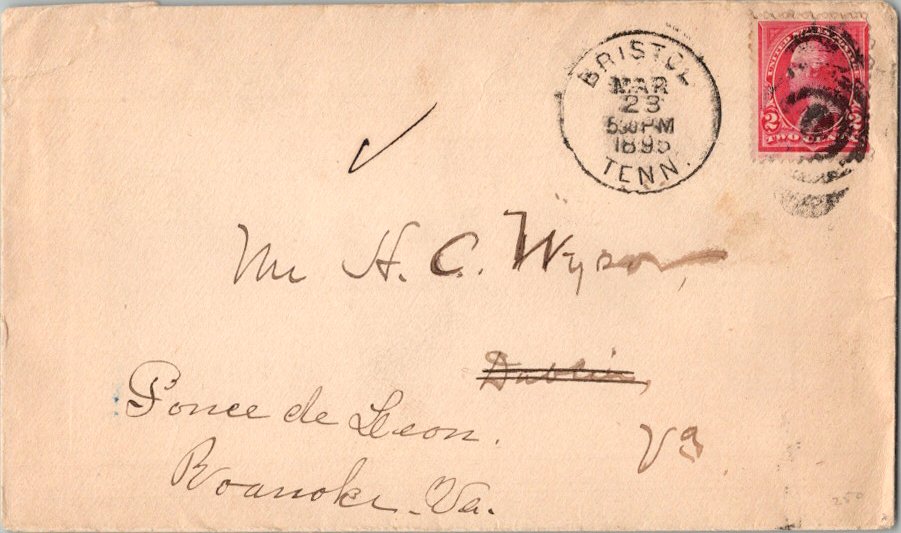 BRISTOL
MAR
23
530 PM
1895
TENN.
2 2
TWO CENTS
Mr H. C. Wysor,
Dublin,
Va
Ponce de Leon.
Roanoke. Va.
250